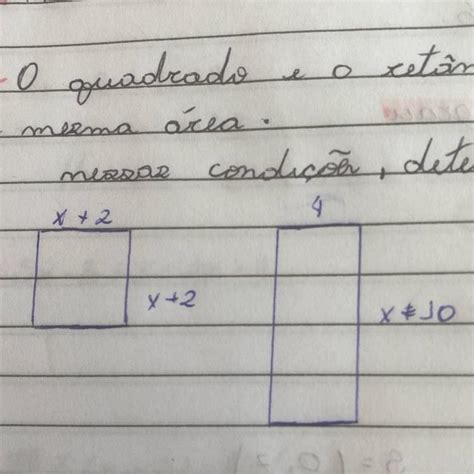 O quadrado e o retân
mesma área.
nessas condições, dete
x + 2
x + 2
4
x + 10